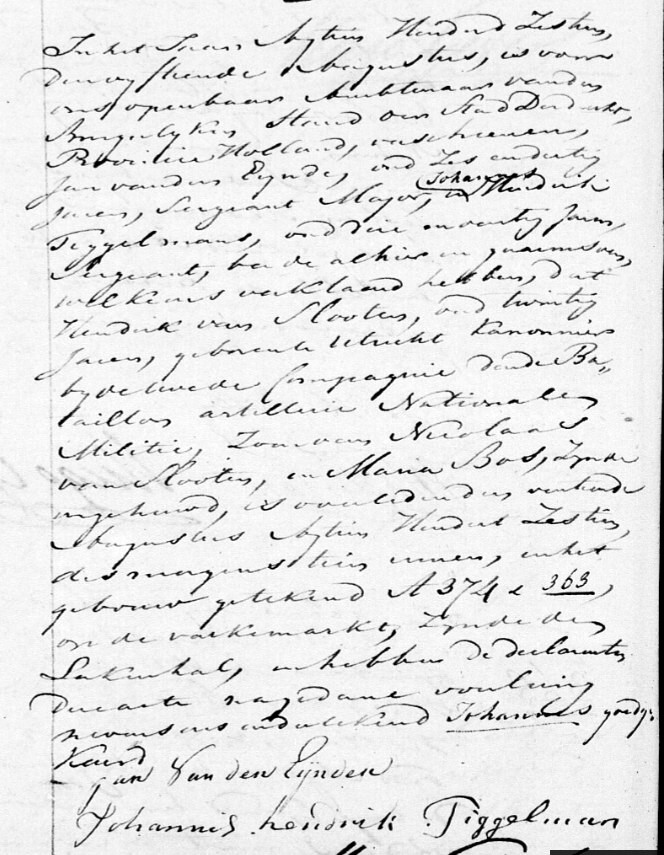 In het Jaar Agtien Honderd Zestien,
Den vyftiende Augustus, is voor
ons openbaar Ambtenaar van den
Burgerlyken Stand der Stad Dordrecht,
Provintie Holland, verscheenen,
Jan van den Eynde, oud Zes en dertig
Jaren, Sergeant Major, en Johannes Hendrik
Tiggelmans, oud drie en veertig Jaren,
Sergeant, beide alhier in guarnisoen,
welke ons verklaard hebben, dat
Hendrik van Slooten, oud twintig
Jaren, geboren te Utrecht Kanonnier
by de tweede Compagnie derde Ba„
taillon artillerie Nationale
Militie, Zoon van Nicolaas
van Slooten, en Maria Bos, Zynde
ongehuwd, is overleeden den
Augustus Agtien Honderd Zestien,
des morgens tien uuren, in het
gebouw getekend A 374 & 363,
op de varkemarkt, Zynde de
Lakenhal, en hebben de declaranten
deze acte na gedane voorlezing
nevens ons ondertekend Johannes goedge„
Keurd
Jan Van den Eynden
Johannis hendrik Tiggelman